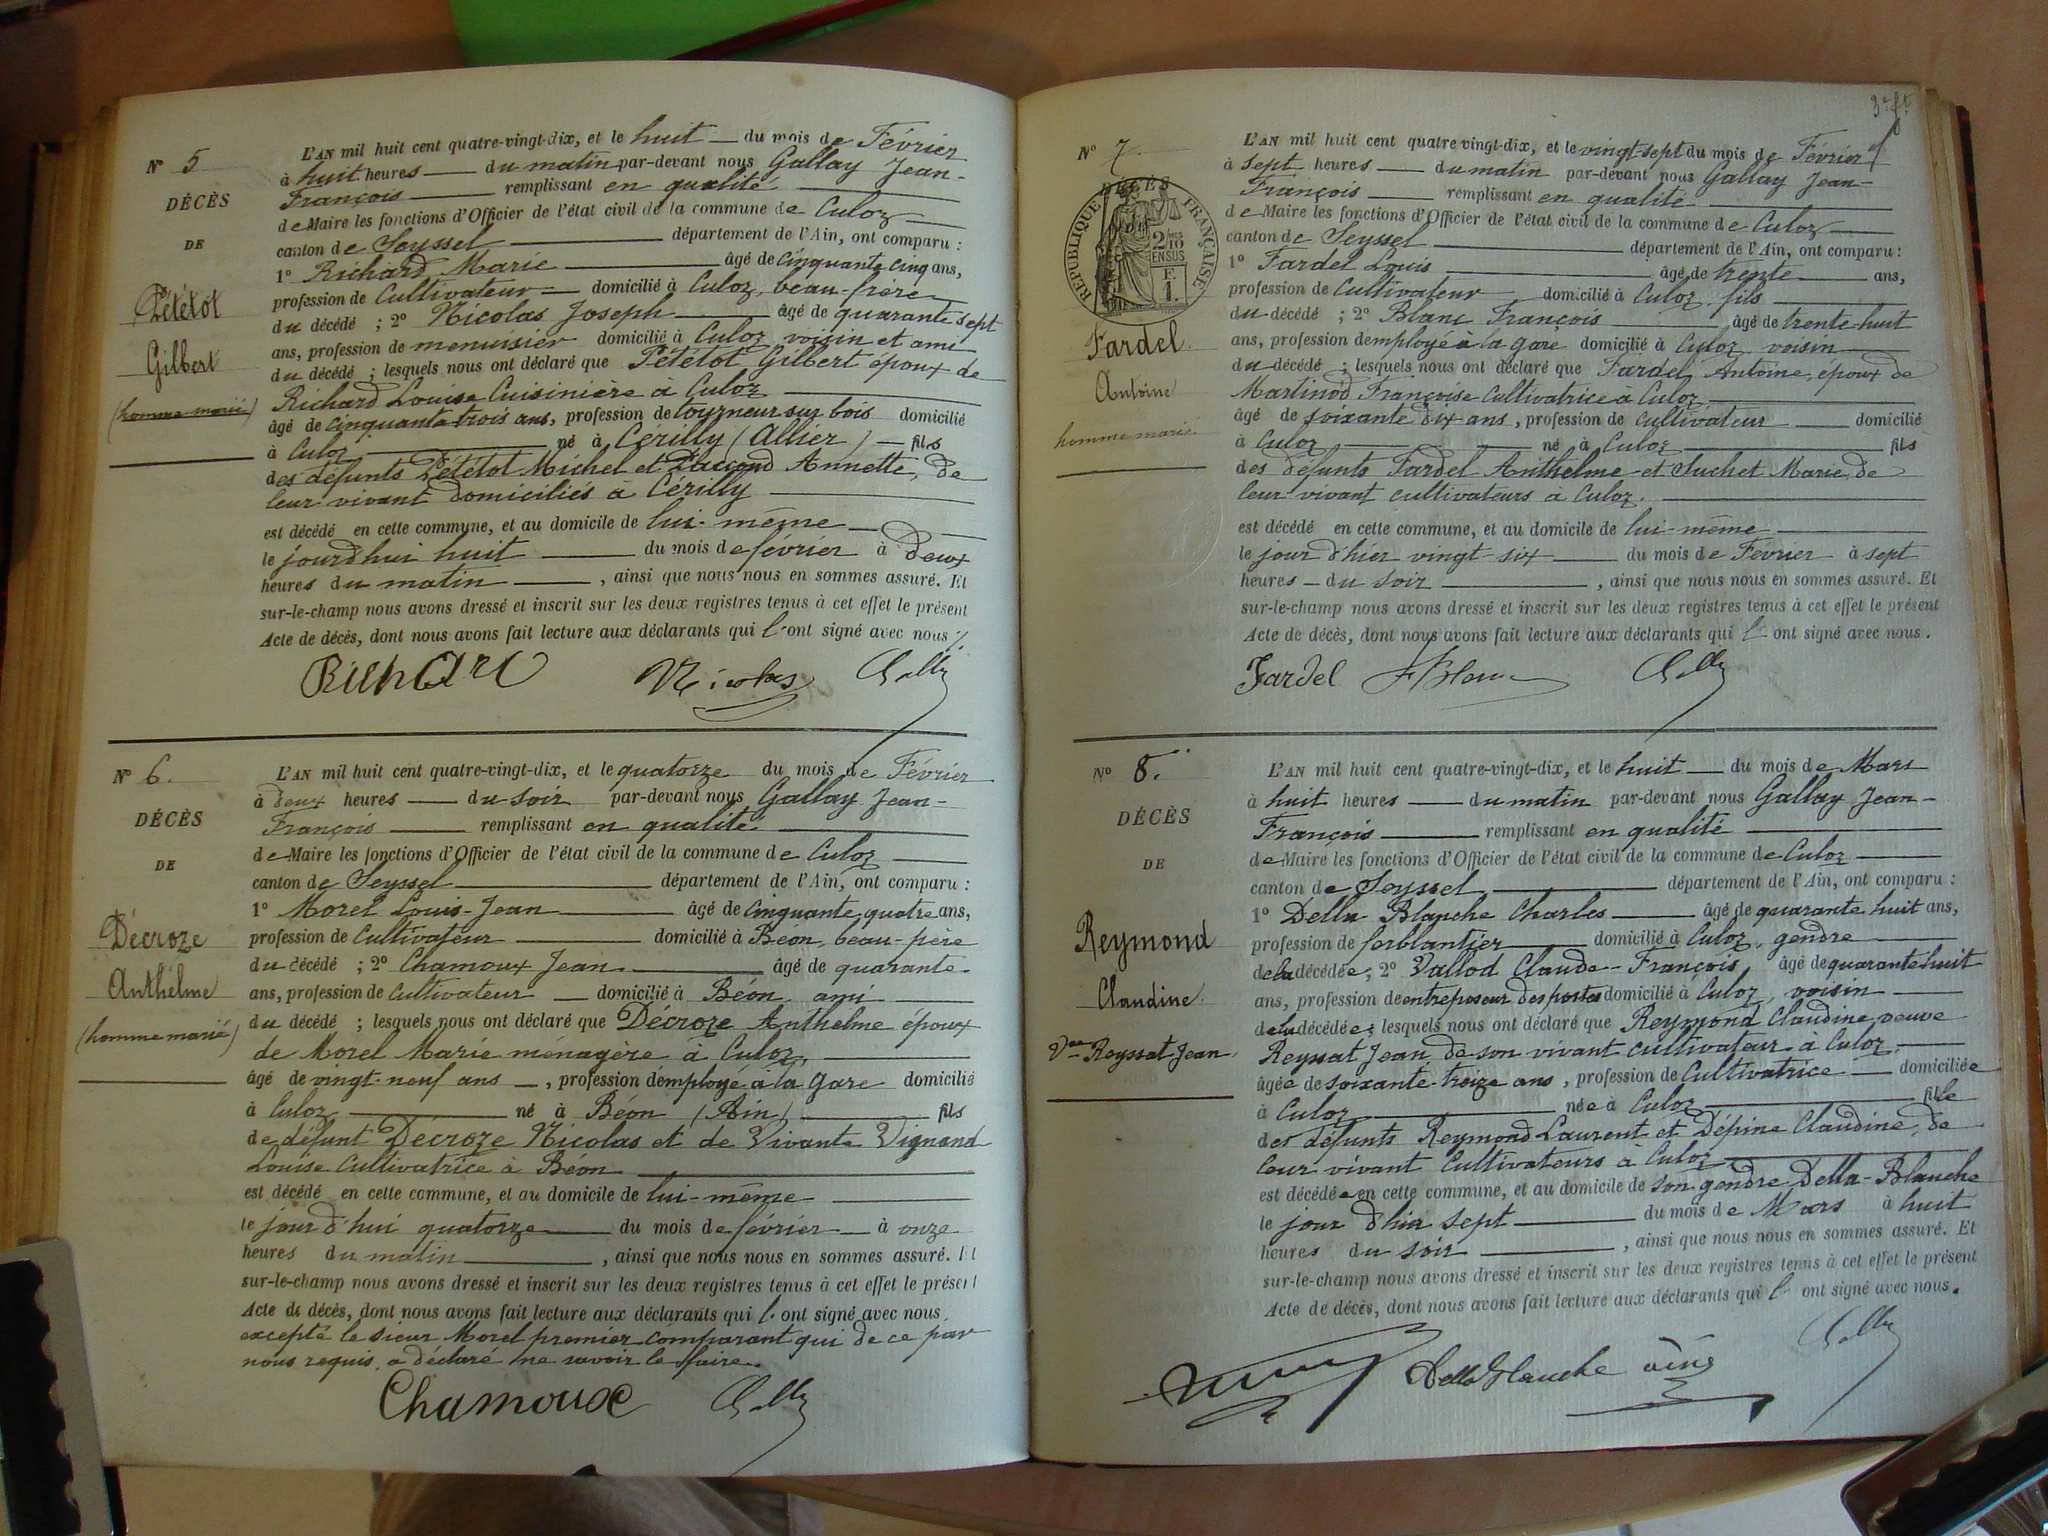 N° 5
DÉCÈS
DE
Pététot
Gilbert
(homme marié)
L'AN mil huit cent quatre-vingt-dix, et le huit du mois de Février
à huit heures du matin par-devant nous Gallay Jean-
François remplissant en qualité
de Maire les fonctions d'Officier de l'état civil de la commune de Culoz
canton de Seyssel département de l'Ain, ont comparu :
1° Richard Marie âgé de cinquante cinq ans,
profession de Cultivateur domicilié à Culoz, beau-frère
du décédé ; 2° Nicolas Joseph âgé de quarante sept
ans, profession de menuisier domicilié à Culoz voisin et ami
du décédé ; lesquels nous ont déclaré que Pététot Gilbert époux de
Richard Louise Cuisinière à Culoz
âgé de cinquante trois ans, profession de tourneur sur bois domicilié
à Culoz né à Cérilly (Allier) fils
des défunts Pététot Michel et Annette, de
leur vivant domiciliés à Cérilly
est décédé en cette commune, et au domicile de lui-même
le jourd'hui huit du mois de février à deux
heures du matin, ainsi que nous nous en sommes assuré. Et
sur-le-champ nous avons dressé et inscrit sur les deux registres tenus à cet effet le présent
Acte de décès, dont nous avons fait lecture aux déclarants qui l'ont signé avec nous
Richard Nicolas
N° 6.
DÉCÈS
DE
Décroze
Anthelme
(homme marié)
L'AN mil huit cent quatre-vingt-dix, et le quatorze du mois de Février
à deux heures du soir par-devant nous Gallay Jean-
François remplissant en qualité
de Maire les fonctions d'Officier de l'état civil de la commune de Culoz
canton de Seyssel département de l'Ain, ont comparu :
1° Morel Louis-Jean âgé de cinquante quatre ans,
profession de Cultivateur domicilié à Béon, beau-père
du décédé ; 2° Chamoux Jean âgé de quarante-
ans, profession de Cultivateur domicilié à Béon ami
du décédé ; lesquels nous ont déclaré que Décroze Anthelme époux
de Morel Marie ménagère à Culoz,
âgé de vingt-neuf ans, profession d'employé à la gare domicilié
à Culoz né à Béon (Ain) fils
de défunt Décroze Nicolas et de Vivante Vignand
Louise Cultivatrice à Béon
est décédé en cette commune, et au domicile de lui-même
le jour d'hui quatorze du mois de février à onze
heures du matin, ainsi que nous nous en sommes assuré. Et
sur-le-champ nous avons dressé et inscrit sur les deux registres tenus à cet effet le présent
Acte de décès, dont nous avons fait lecture aux déclarants qui l'ont signé avec nous
excepté le sieur Morel premier comparant qui de ce par
nous requis, a déclaré ne savoir le faire.
Chamoux
N° 7
DÉCÈS
RÉPUBLIQUE FRANÇAISE
Fardel
Antoine
homme marié
L'AN mil huit cent quatre vingt-dix, et le vingt-sept du mois de Février
à sept heures du matin par-devant nous Gallay Jean-
François remplissant en qualité
de Maire les fonctions d'Officier de l'état civil de la commune de Culoz
canton de Seyssel département de l'Ain, ont comparu :
1° Fardel Louis âgé de trente ans,
profession de Cultivateur domicilié à Culoz fils
du décédé ; 2° Blanc François âgé de trente-huit
ans, profession d'employé à la gare domicilié à Culoz voisin
du décédé ; lesquels nous ont déclaré que Fardel Antoine, époux de
Martinod Françoise Cultivatrice à Culoz
âgé de soixante dix ans, profession de cultivateur domicilié
à Culoz né à Culoz fils
des défunts Fardel Anthelme et Suchet Marie, de
leur vivant cultivateurs à Culoz.
est décédé en cette commune, et au domicile de lui-même
le jour d'hier vingt-six du mois de Février à sept
heures du soir, ainsi que nous nous en sommes assuré. Et
sur-le-champ nous avons dressé et inscrit sur les deux registres tenus à cet effet le présent
Acte de décès, dont nous avons fait lecture aux déclarants qui l'ont signé avec nous.
Fardel
N° 8.
DÉCÈS
DE
Reymond
Claudine
Vve Reyssat Jean
L'AN mil huit cent quatre-vingt-dix, et le huit du mois de Mars
à huit heures du matin par-devant nous Gallay Jean-
François remplissant en qualité
de Maire les fonctions d'Officier de l'état civil de la commune de Culoz
canton de Seyssel département de l'Ain, ont comparu :
1° Della Blanche Charles âgé de quarante huit ans,
profession de ferblantier domicilié à Culoz, gendre
de la décédée ; 2° Vallod Claude-François âgé de quarante-huit
ans, profession de entreposeur des postes domicilié à Culoz, voisin
de la décédée ; lesquels nous ont déclaré que Reymond Claudine veuve
Reyssat Jean de son vivant cultivateur à Culoz
âgée de soixante-treize ans, profession de Cultivatrice domiciliée
à Culoz née à Culoz fille
des défunts Reymond Laurent et Dépine Claudine, de
leur vivant Cultivateurs à Culoz
est décédée en cette commune, et au domicile de son gendre Della-Blanche
le jour d'hier sept du mois de Mars à huit
heures du soir, ainsi que nous nous en sommes assuré. Et
sur-le-champ nous avons dressé et inscrit sur les deux registres tenus à cet effet le présent
Acte de décès, dont nous avons fait lecture aux déclarants qui l'ont signé avec nous.
Della Blanche aîné